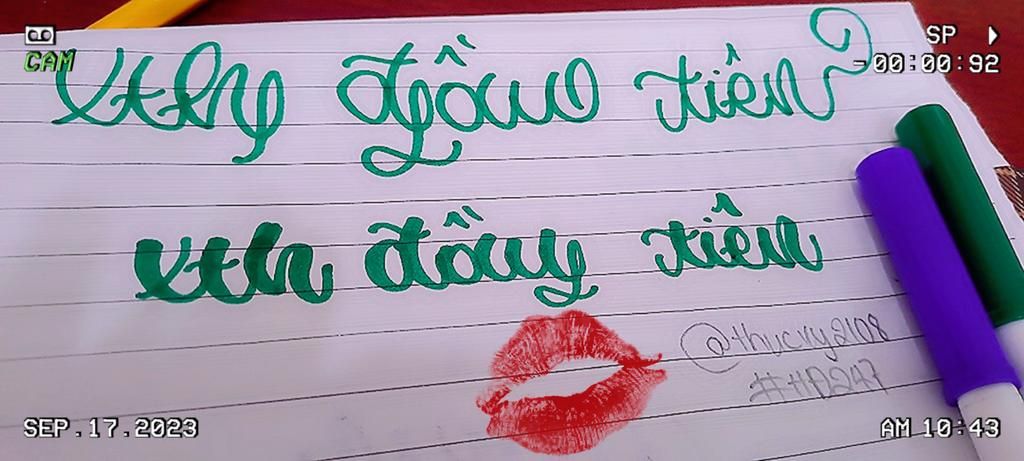 SP
CAM
-00:00:92
đầu tiên
đầu tiên
@thucry2108
#HĐ247
SEP.17.2023
AM 10:43